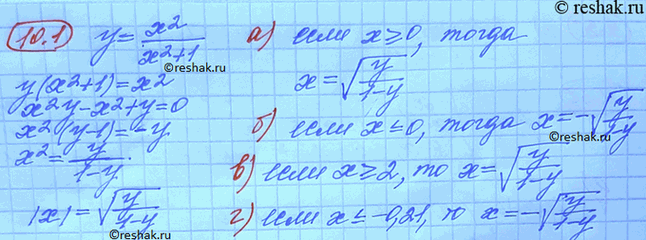 ©reshak.ru
10.1 y = x²/(x²+1)
y(x²+1)=x²
x²y-x²+y=0
x²(y-1)=-y
x²=y/(1-y)
|x|=√(y/(1-y))
а) если x≥0, тогда
x=√(y/(1-y))
б) если x≤0, тогда x=-√(y/(1-y))
в) если x≥2, то x=√(y/(1-y))
г) если x≤-0,21, то x=-√(y/(1-y))
©reshak.ru
©reshak.ru
©reshak.ru